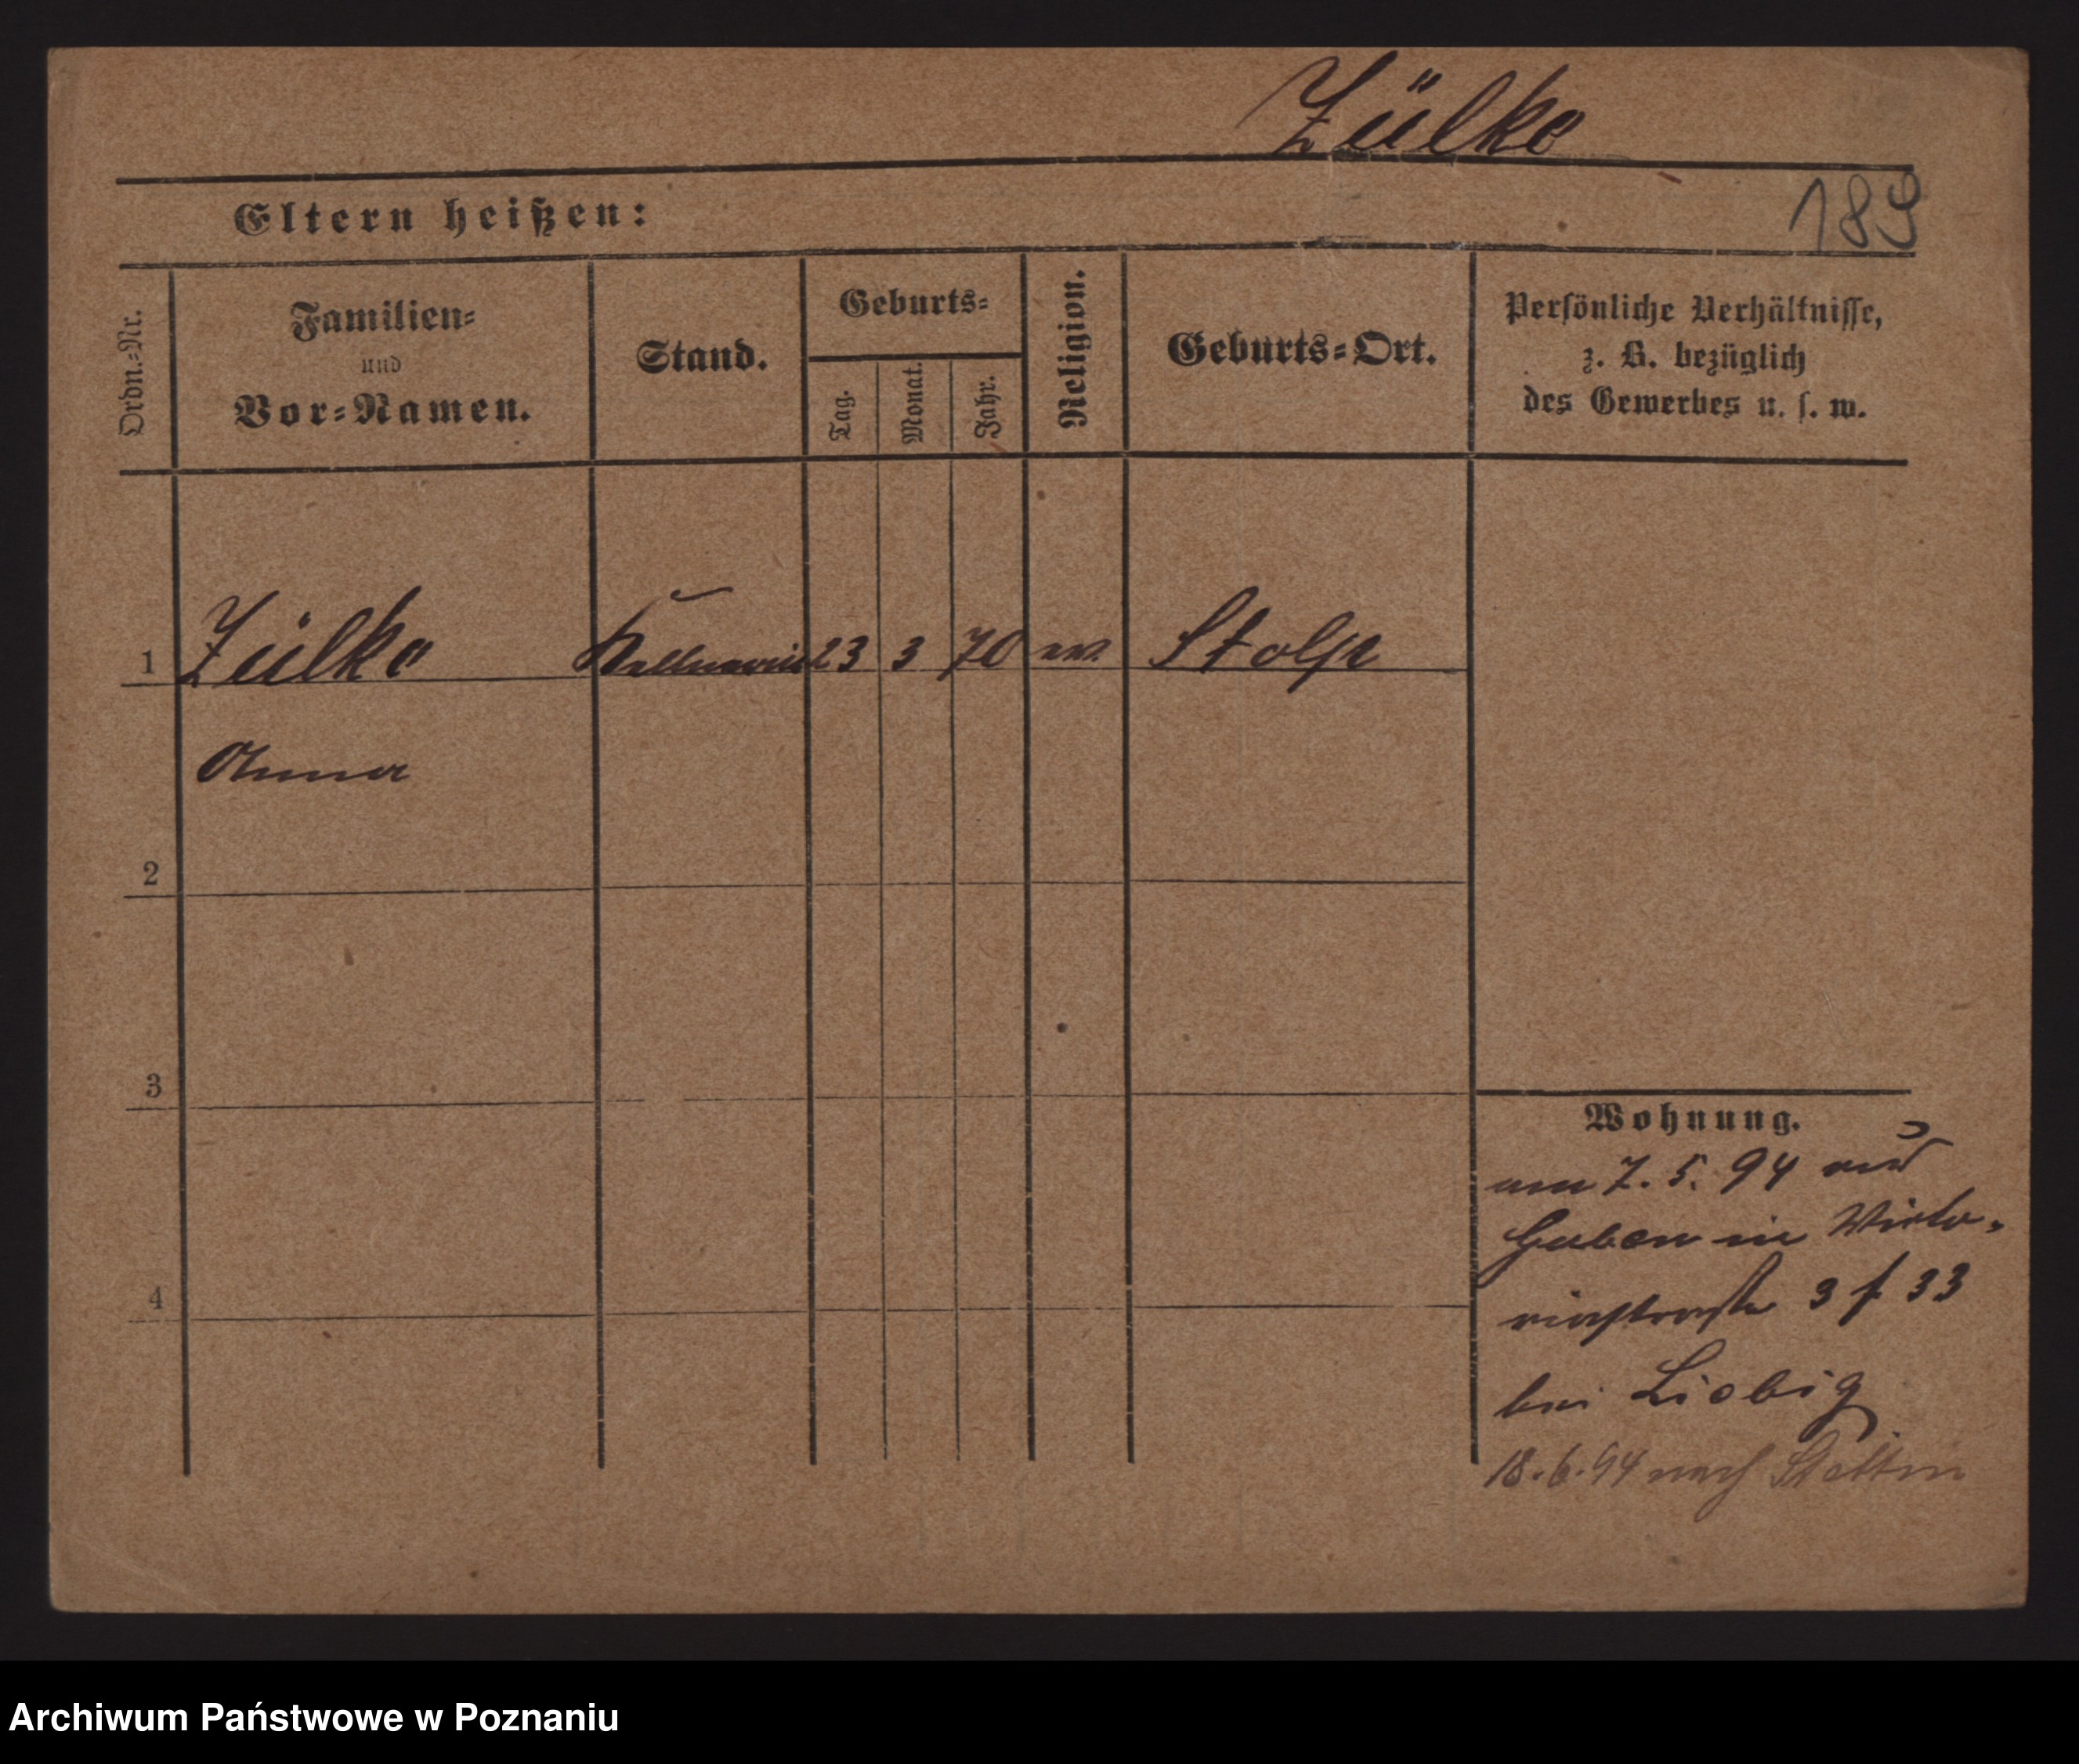 Zülke
189
Eltern heißen:
Ordn.-Nr.
Familien-
und
Vor-Namen.
Stand.
Geburts-
Tag.
Monat.
Jahr.
Religion.
Geburts-Ort.
Persönliche Verhältnisse,
z. B. bezüglich
des Gewerbes u. s. w.
1 Zülke Kellnerin 23 3 70 ev. Stolp
Anna
2
3
4
Wohnung.
am 7. 5. 94 aus
Guben in Victo-
riastraße 3 f 33
bei Liebig
18. 6. 94 nach Stettin
Archiwum Państwowe w Poznaniu